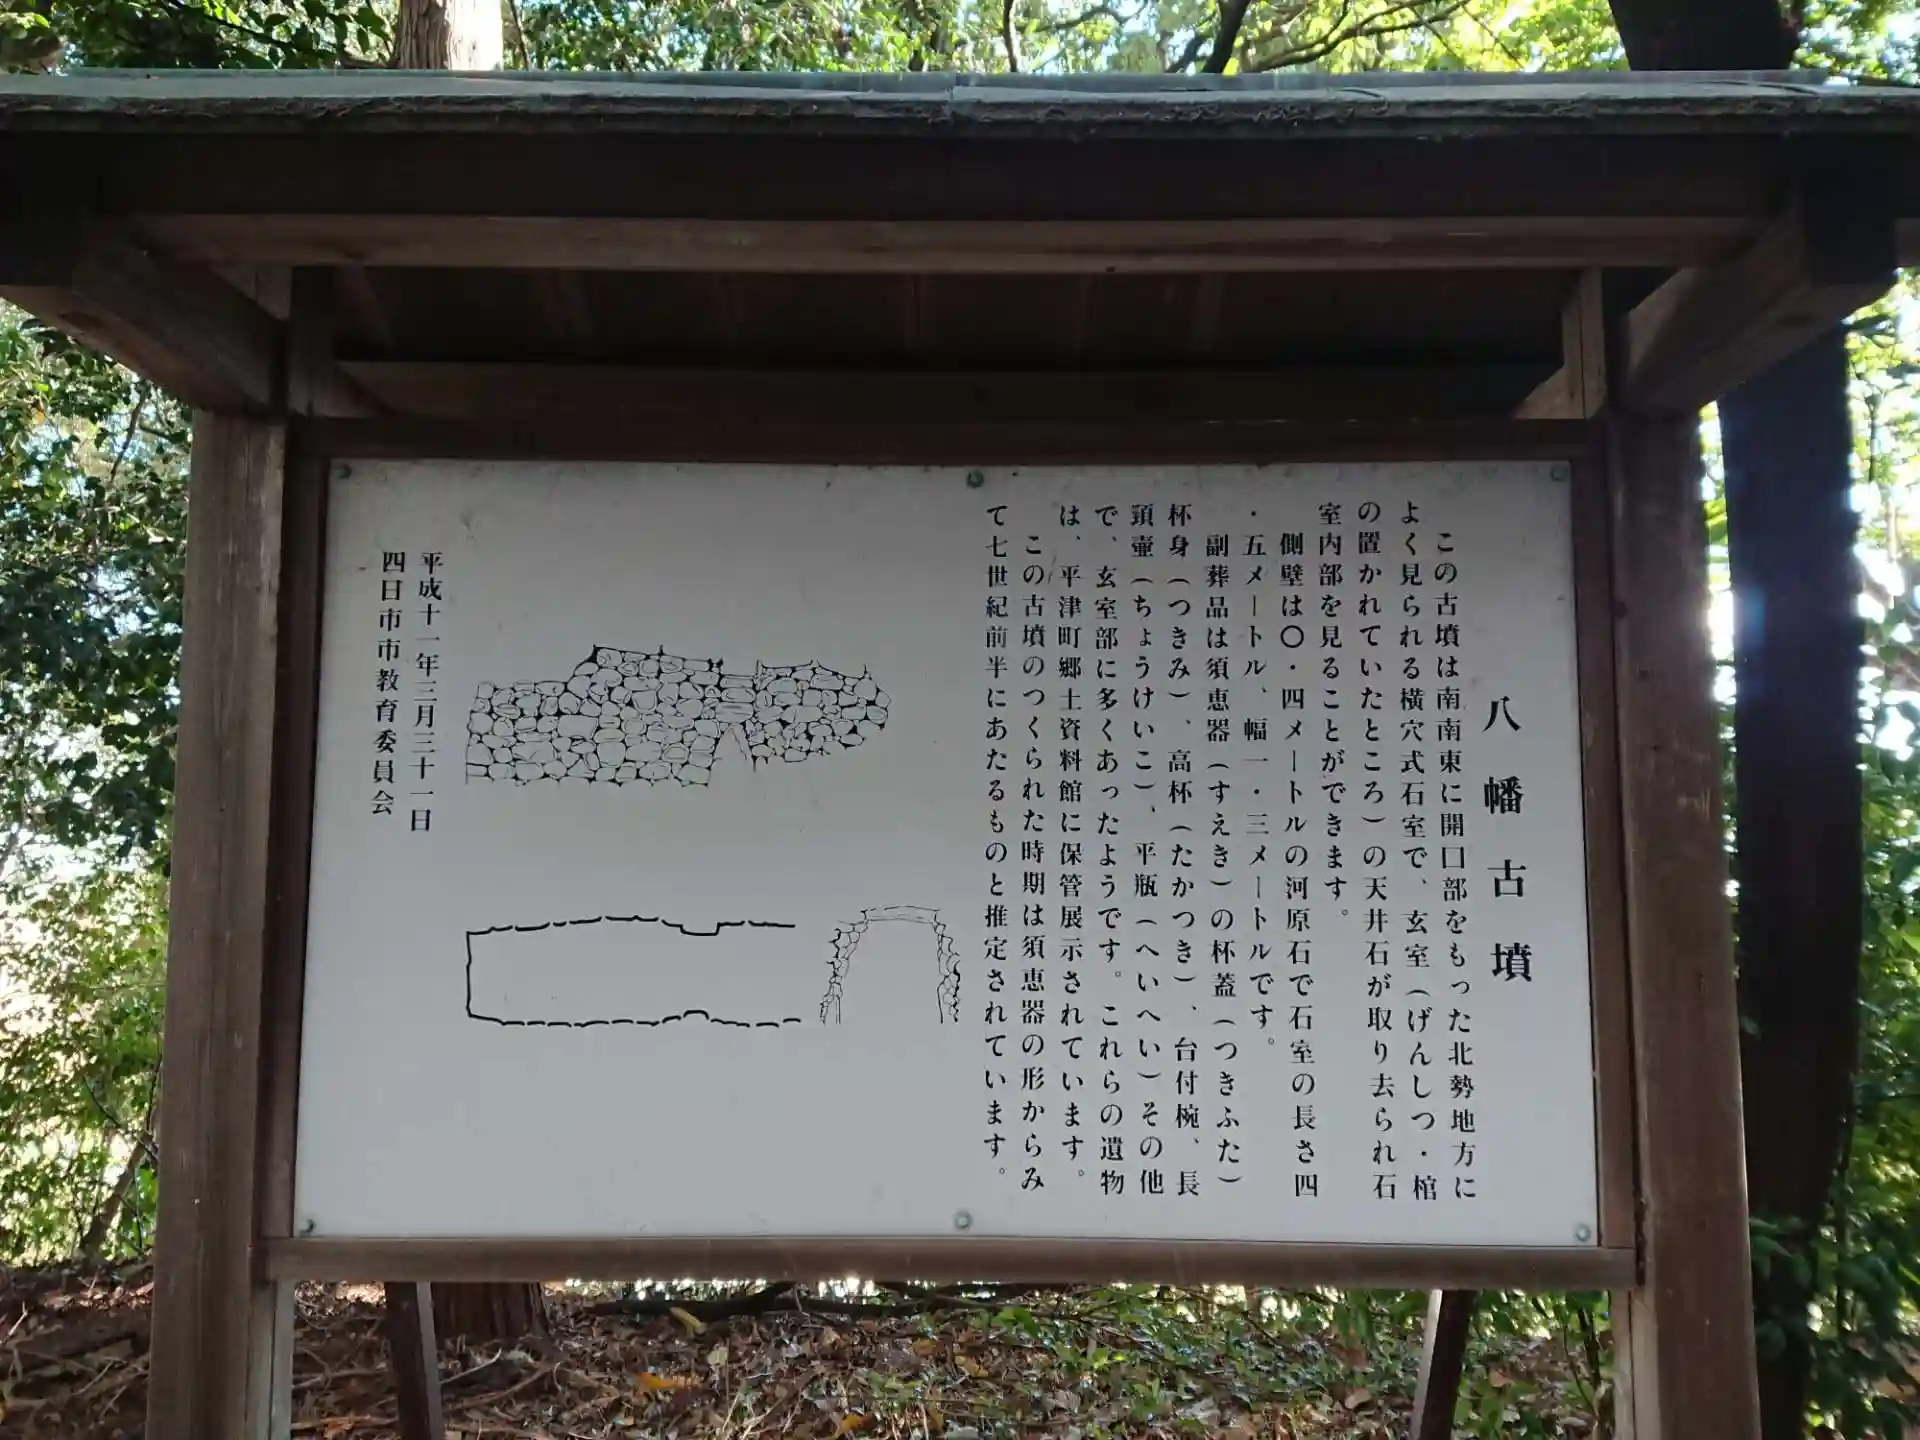 八幡古墳
この古墳は南南東に開口部をもった北勢地方に
よく見られる横穴式石室で、玄室（げんしつ・棺
の置かれていたところ）の天井石が取り去られ石
室内部を見ることができます。
側壁は〇・四メートルの河原石で石室の長さ四
・五メートル、幅一・三メートルです。
副葬品は須恵器（すえき）の杯蓋（つきふた）
杯身（つきみ）、高杯（たかつき）、台付椀、長
頚壷（ちょうけいこ）、平瓶（へいへい）その他
で、玄室部に多くあったようです。これらの遺物
は、平津町郷土資料館に保管展示されています。
この古墳のつくられた時期は須恵器の形からみ
て七世紀前半にあたるものと推定されています。
平成十一年三月三十一日
四日市市教育委員会